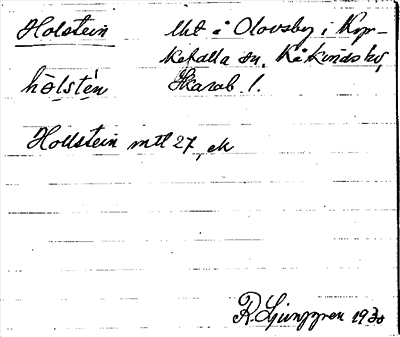 Holstein
hòlstén
Ut å Olovsby i Kyr-
kefalla sn, Kåkinds hd,
Skarab. l.
Hollstein mtl 27, ek
R. Ljunggren 1930